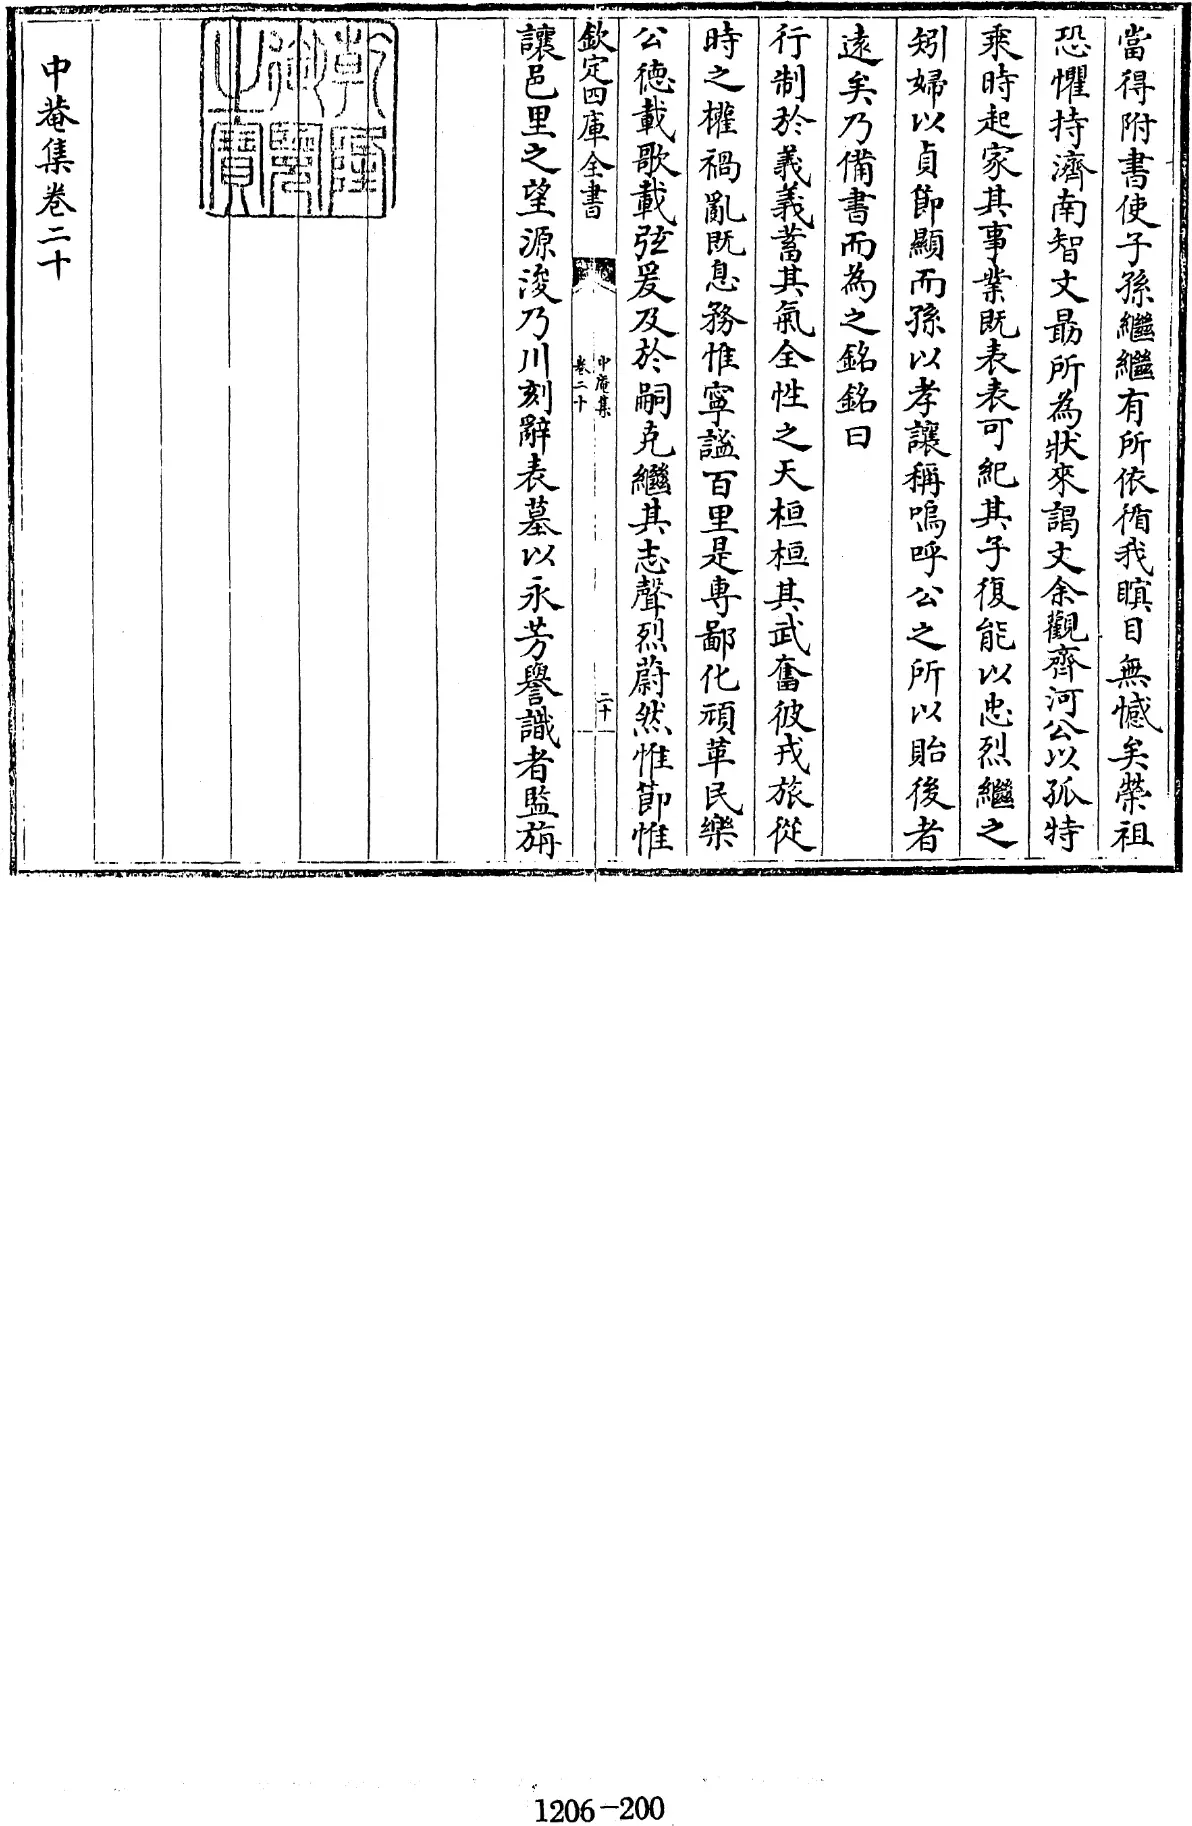 當得附書使子孫繼繼有所依循我瞑目無憾矣榮祖
恐懼持濟南智文勗所為狀來謁文余觀齊河公以孤特
乘時起家其事業既表表可紀其子復能以忠烈繼之
矧婦以貞節顯而孫以孝讓稱嗚呼公之所以貽後者
遠矣乃備書而為之銘銘曰
行制於義義蓄其氣全性之天桓桓其武奮彼戎旅從
時之權禍亂既息務惟寧謐百里是專鄙化頑革民樂
公德載歌載弦爰及於嗣克繼其志聲烈蔚然惟節惟
欽定四庫全書
中庵集
卷二十
二十
讓邑里之望源浚乃川刻辭表墓以永芳譽識者監旃
乾隆御覽之寶
中菴集卷二十
1206-200